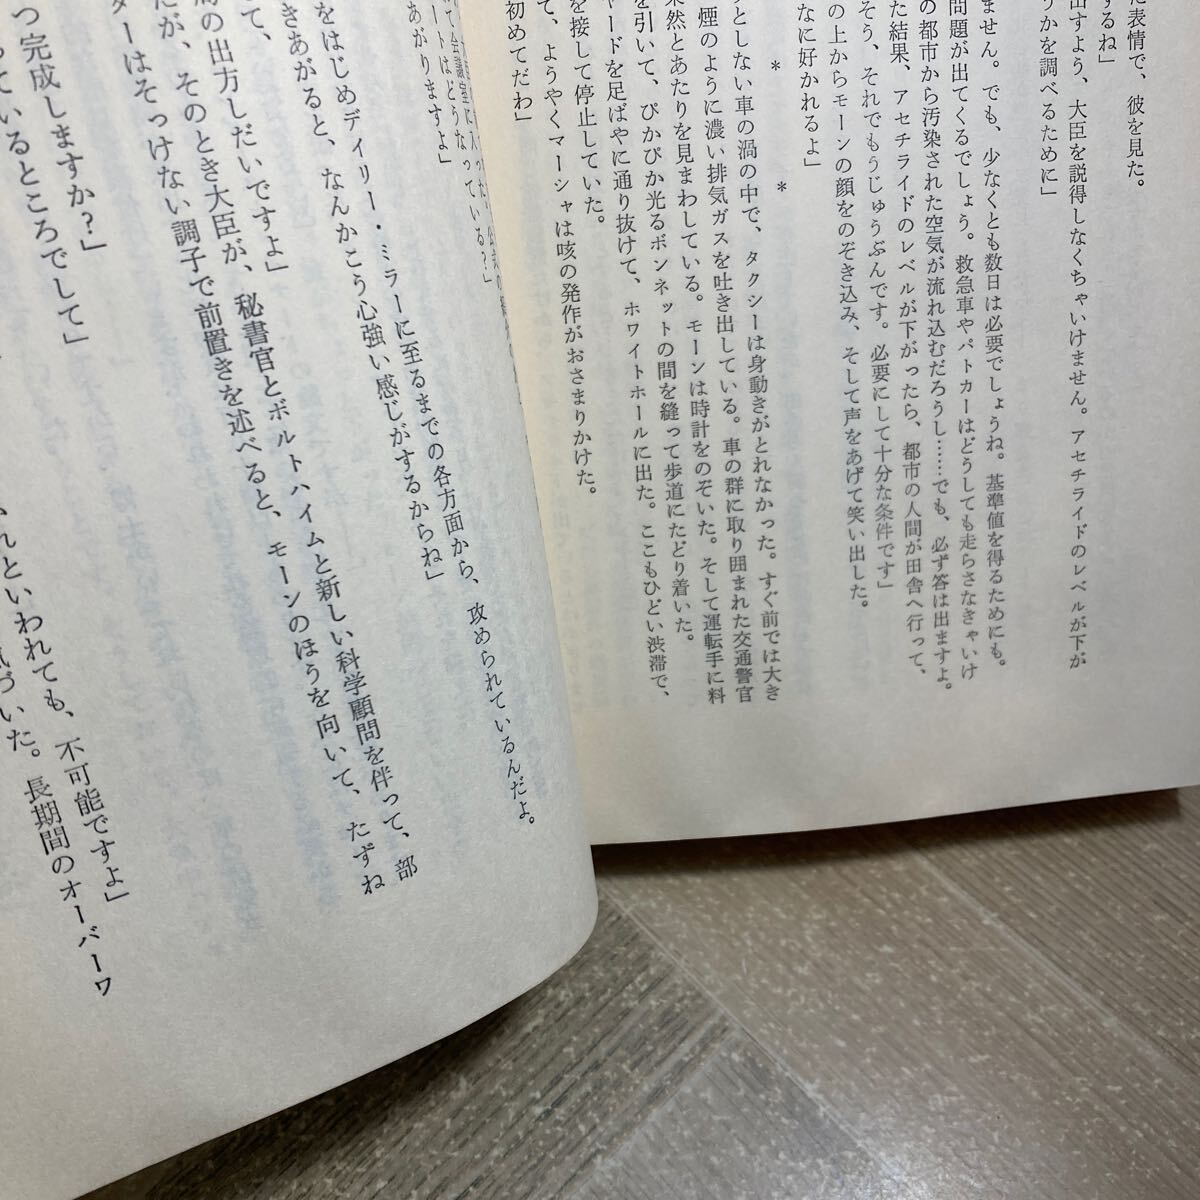 た表情で、彼を見た。
出すよう、大臣を説得しなくちゃいけません。アセチライドのレベルが下が
うかを調べるために」
するね」
ません。でも、少なくとも数日は必要でしょうね。基準値を得るためにも。
問題が出てくるでしょう。救急車やパトカーはどうしても走らさなきゃいけ
の都市から汚染された空気が流れ込むだろうし……でも、必ず答は出ますよ。
た結果、アセチライドのレベルが下がったら、都市の人間が田舎へ行って、
そう、それでもうじゅうぶんです。必要にして十分な条件です」
の上からモーンの顔をのぞき込み、そして声をあげて笑い出した。
なに好かれるよ」
＊　＊
としない車の渦の中で、タクシーは身動きがとれなかった。すぐ前では大き
煙のように濃い排気ガスを吐き出している。車の群に取り囲まれた交通警官
然とあたりを見まわしている。モーンは時計をのぞいた。そして運転手に料
を引いて、ぴかぴか光るボンネットの間を縫って歩道にたどり着いた。
ヤードを足ばやに通り抜けて、ホワイトホールに出た。ここもひどい渋滞で、
を接して停止していた。
て、ようやくマーシャは咳の発作がおさまりかけた。
初めてだわ」
て会議室に入った。
ートはどうなっている？」
あがりますよ」
をはじめデイリー・ミラーに至るまでの各方面から、攻められているんだよ。
きあがると、なんかこう心強い感じがするからね」
て、
の出方しだいですよ」
だが、そのとき大臣が、秘書官とボルトハイムと新しい科学顧問を伴って、部
ターはそっけない調子で前置きを述べると、モーンのほうを向いて、たずね
つ完成しますか？」
っているところでして」
れといわれても、不可能ですよ」
づいた。長期間のオーバーワ